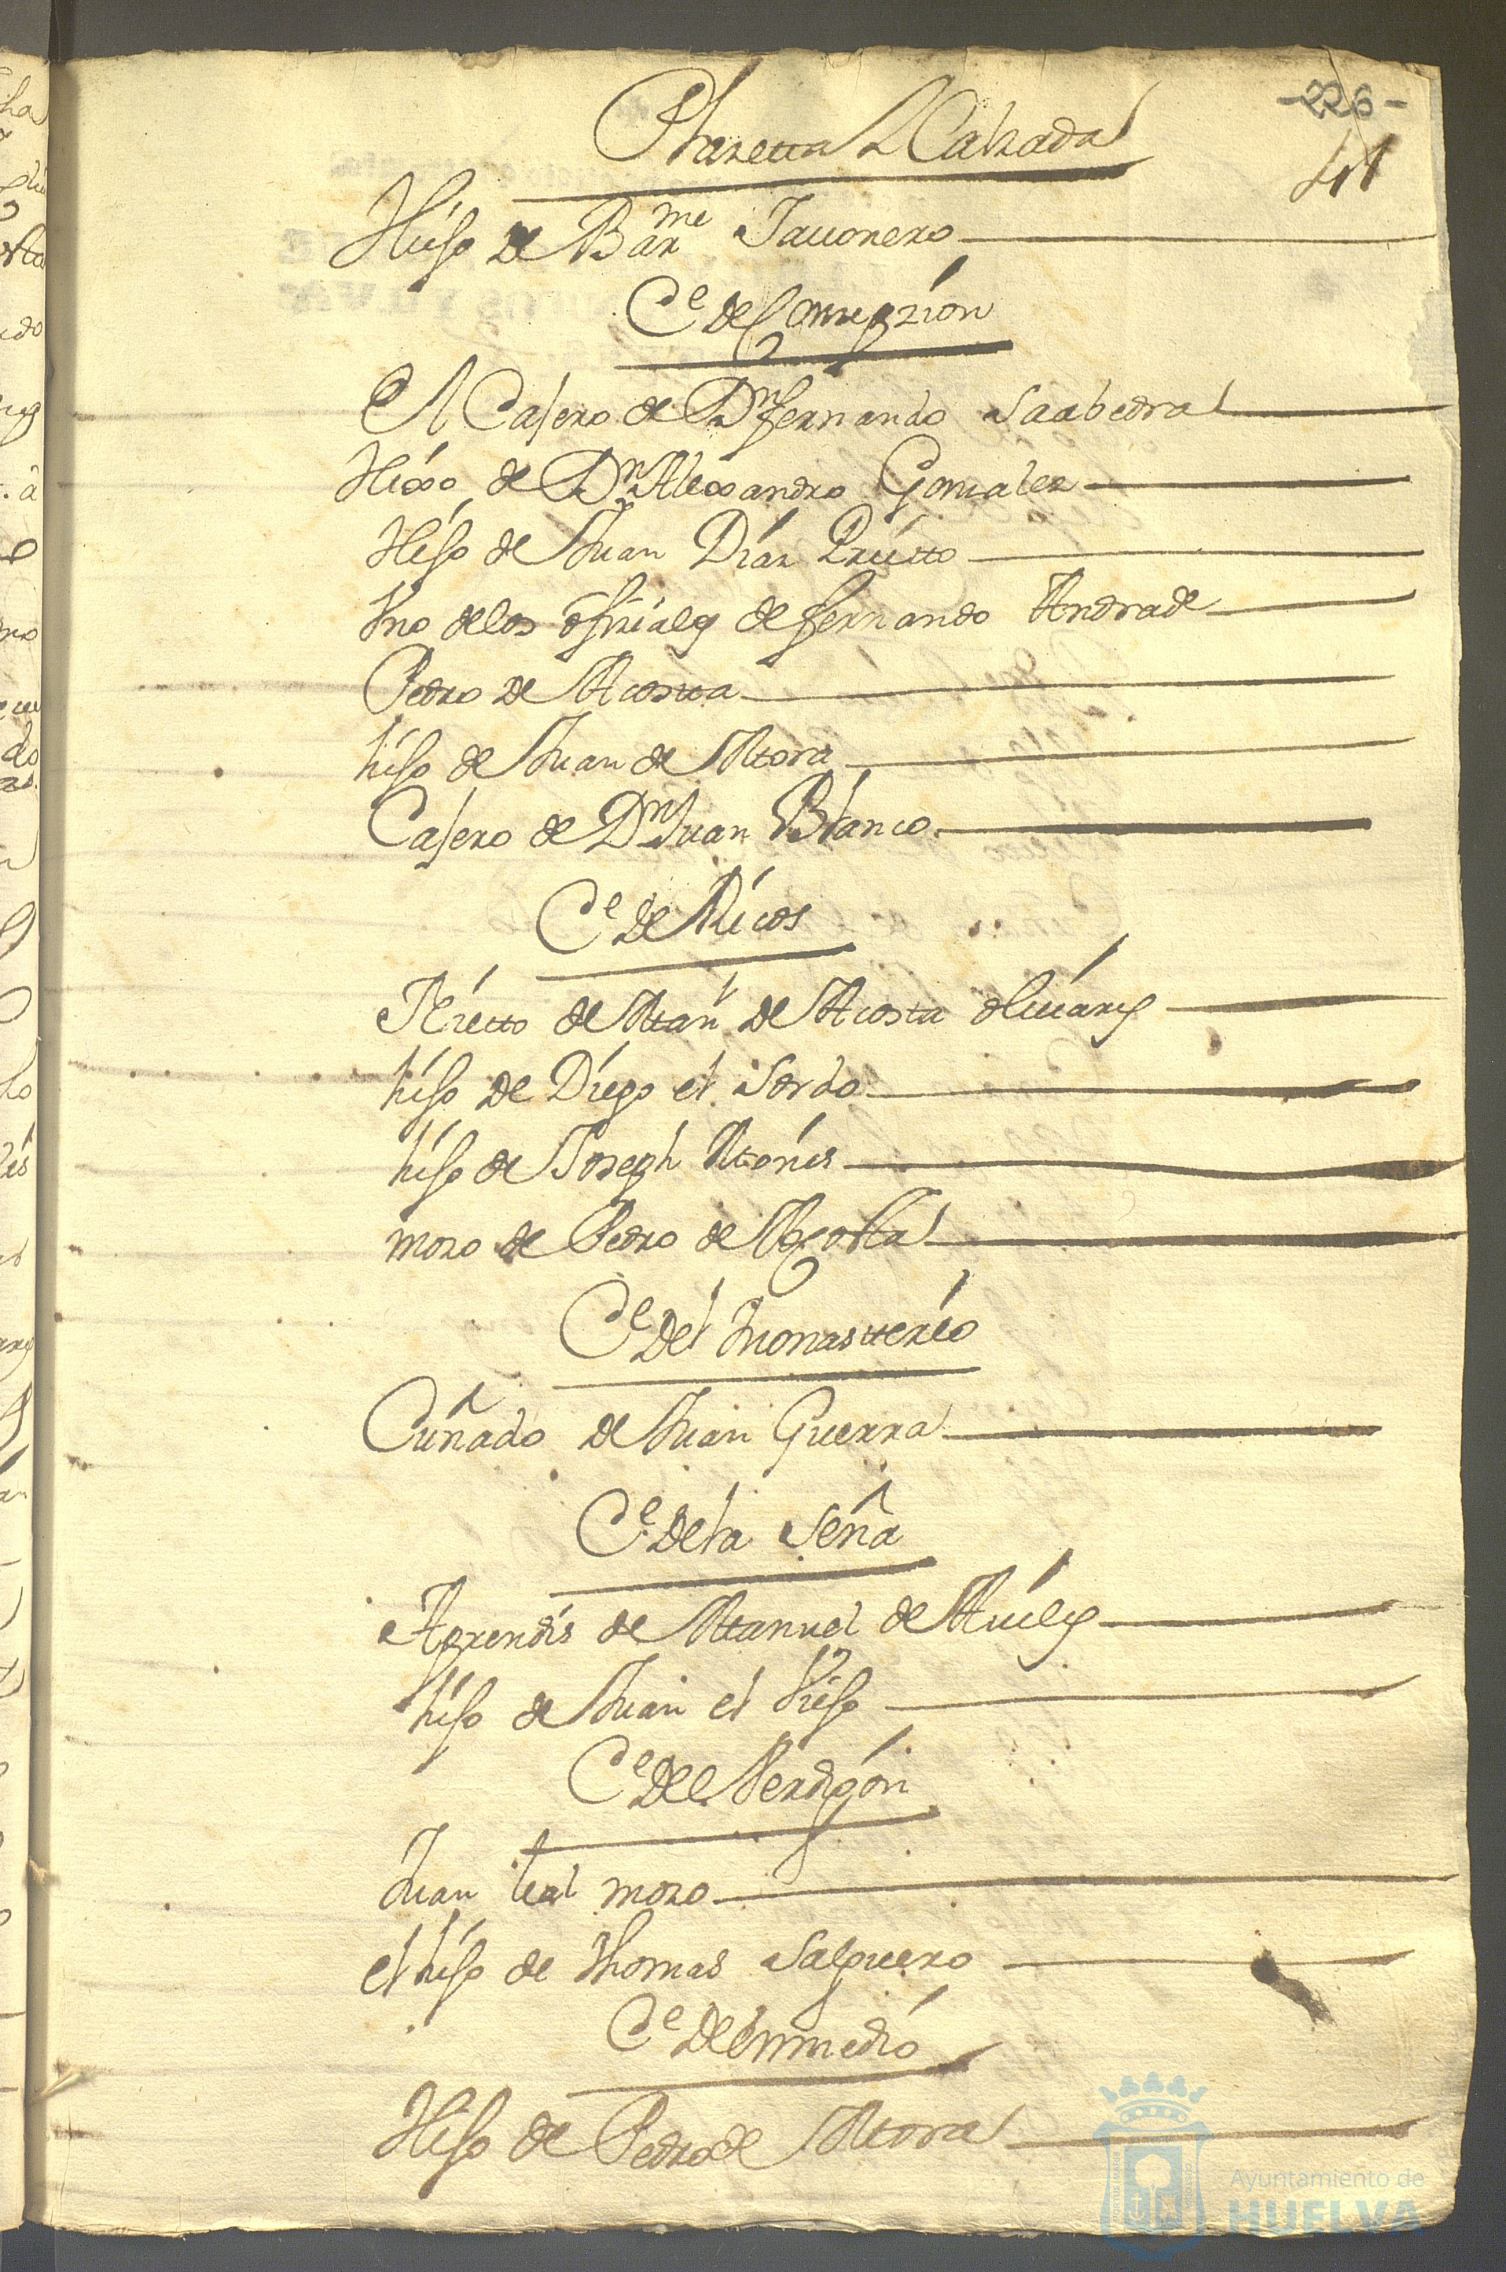 -226-
41
Plazetta y Calzada
Hijo de Barme Javonero
Ce de Conzepzion
El Casero de Dn fernando Saabedra
Hixo de Dn Alexandro Gonzalez
Hijo de Juan Diaz Prietto
Vno de los ofiziales de fernando Andrade
Pedro de Acosta
hijo de Juan de Mora
Casero de Dn Juan Blanco
Ce de Ricos
Nietto de Man de Acosta olivares
hijo de Diego el Sordo
hijo de Joseph
mozo de Pedro de Acosta
Ce del monasterio
Cuñado de Juan Guerra
Ce de la Seña
Aprendis de Manuel de Aviles
hijo de Juan el Viejo
Ce del Perdigon
Juan leal mozo
el hijo de Thomas Salguero
Ce de Enmedio
Hijo de Pedro de Mora
Ayuntamiento de
HUELVA